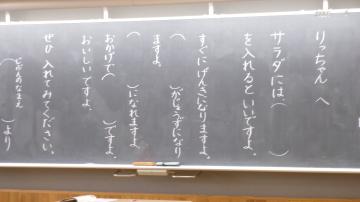 りっちゃん へ
サラダには、(　　)
を入れるといいですよ。
すぐにげんきになりますよ。
(　　)がじょうずになり
ますよ。
(　　)になれますよ。
おかげで(　　)ですよ。
おいしいですよ。
ぜひ 入れてみてください。
(じぶんのなまえ) より